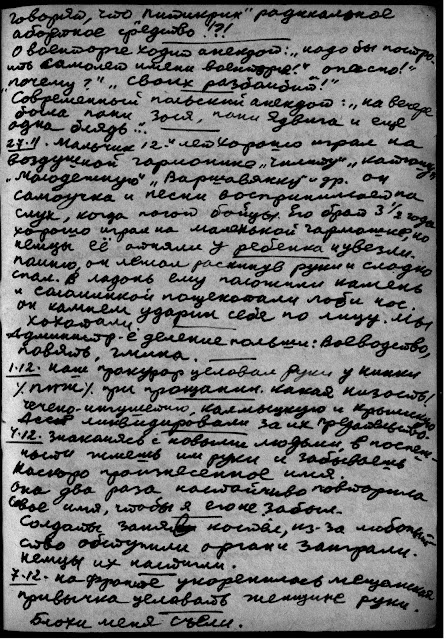 говорят, что "пипикрик" радикальное
абортное средство !?!
О военторге ходит анекдот: "надо бы постро-
ить самолет имени военторга!" опасно!"
"почему?" "своих разбомбит!"
Современный польский анекдот: "на вечере
была пани Зося, пани Ядвига и еще
одна блядь..."
27.11. Мальчик 12 лет хорошо играл на
воздушной гармонике "Чилиту", "Катюшу",
"Молодежную", "Варшавянку" и др. он
самоучка и песни воспринимает на
слух, когда поют бойцы. Его брат 3½ года
хорошо играл на маленькой гармошке, но
немцы её отняли у ребенка и увезли.
он лежал раскинув руки и сладко
спал. В ладонь ему положили камень
и соломинкой пощекотали лоб и нос.
он камнем ударил себе по лицу. Мы
хохотали.
Администр-е деление Польши: Воеводство,
повят, гмина.
1.12. наш прокурор целовал руки у
при прощании. какая низость!
Чечено-ингушетию, калмыцкую и крымскую
АССР ликвидировали за их предательство.
4.12. знакомясь с новыми людьми, в поспеш-
ности жмешь им руки и забываешь
наскоро произнесенное имя.
она два раза настойчиво повторила
свое имя, чтобы я его не забыл.
Солдаты заняли костёл, из-за любопыт-
ства обступили орган и заиграли.
немцы их настигли.
7.12. на фронте укоренилась мещанская
привычка целовать женщине руки.
Блохи меня съели.